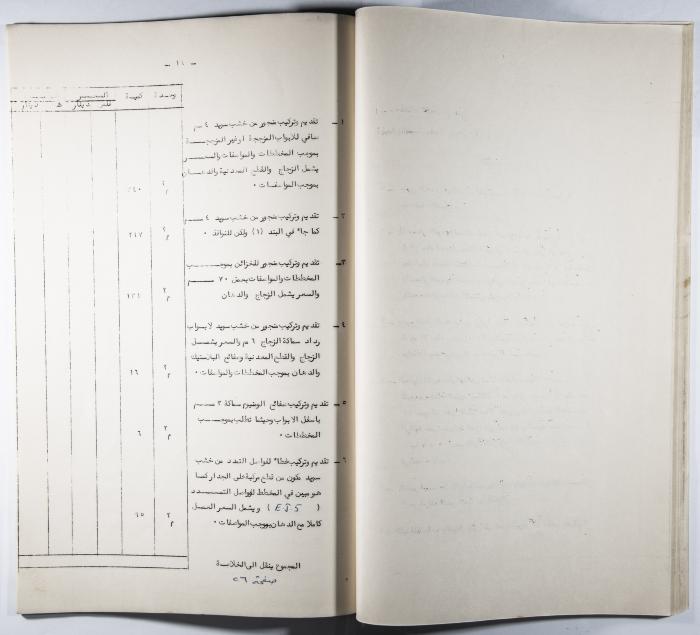 - ١١ -
وحدة كمية السعر
فلس دينار ف دينار
١ - تقديم وتركيب منجور من خشب سويد ٤ سم
صافي للابواب المزججة او غير المزججة
بموجب المخططات والمواصفات والسعر
يشمل الزجاج والقطع المعدنية والدهان
بموجب المواصفات ٠ م٢ ٢٤٠
٢ - تقديم وتركيب منجور من خشب سويد ٤ سم
كما جاء في البند (١) ولكن للنوافذ ٠ م٢ ٢٤٧
٣ - تقديم وتركيب منجور للخزائن بموجب
المخططات والمواصفات بعمق ٧٠ سم
والسعر يشمل الزجاج والدهان م٢ ١٣١
٤ - تقديم وتركيب منجور من خشب سويد لابواب
رداد سماكة الزجاج ٦ م والسعر يشمل
الزجاج والقطع المعدنية وصفائح البلاستيك
والدهان بموجب المخططات والمواصفات ٠ م٢ ١٦
٥ - تقديم وتركيب صفائح الومنيوم سماكة ٣ مم
باسفل الابواب وحيثما تطلب بموجب
المخططات ٠ م٢ ٦
٦ - تقديم وتركيب غطاء لفواصل التمدد من خشب
سويد مكون من قطع مركبة على الجدار كما
هو مبين في المخطط لفواصل التمدد
( E.J.5 ) ويشمل السعر العمل
كاملا مع الدهان بموجب المواصفات ٠ م٢ ٦٥
المجموع ينقل الى الخلاصة
صفحة ٥٦